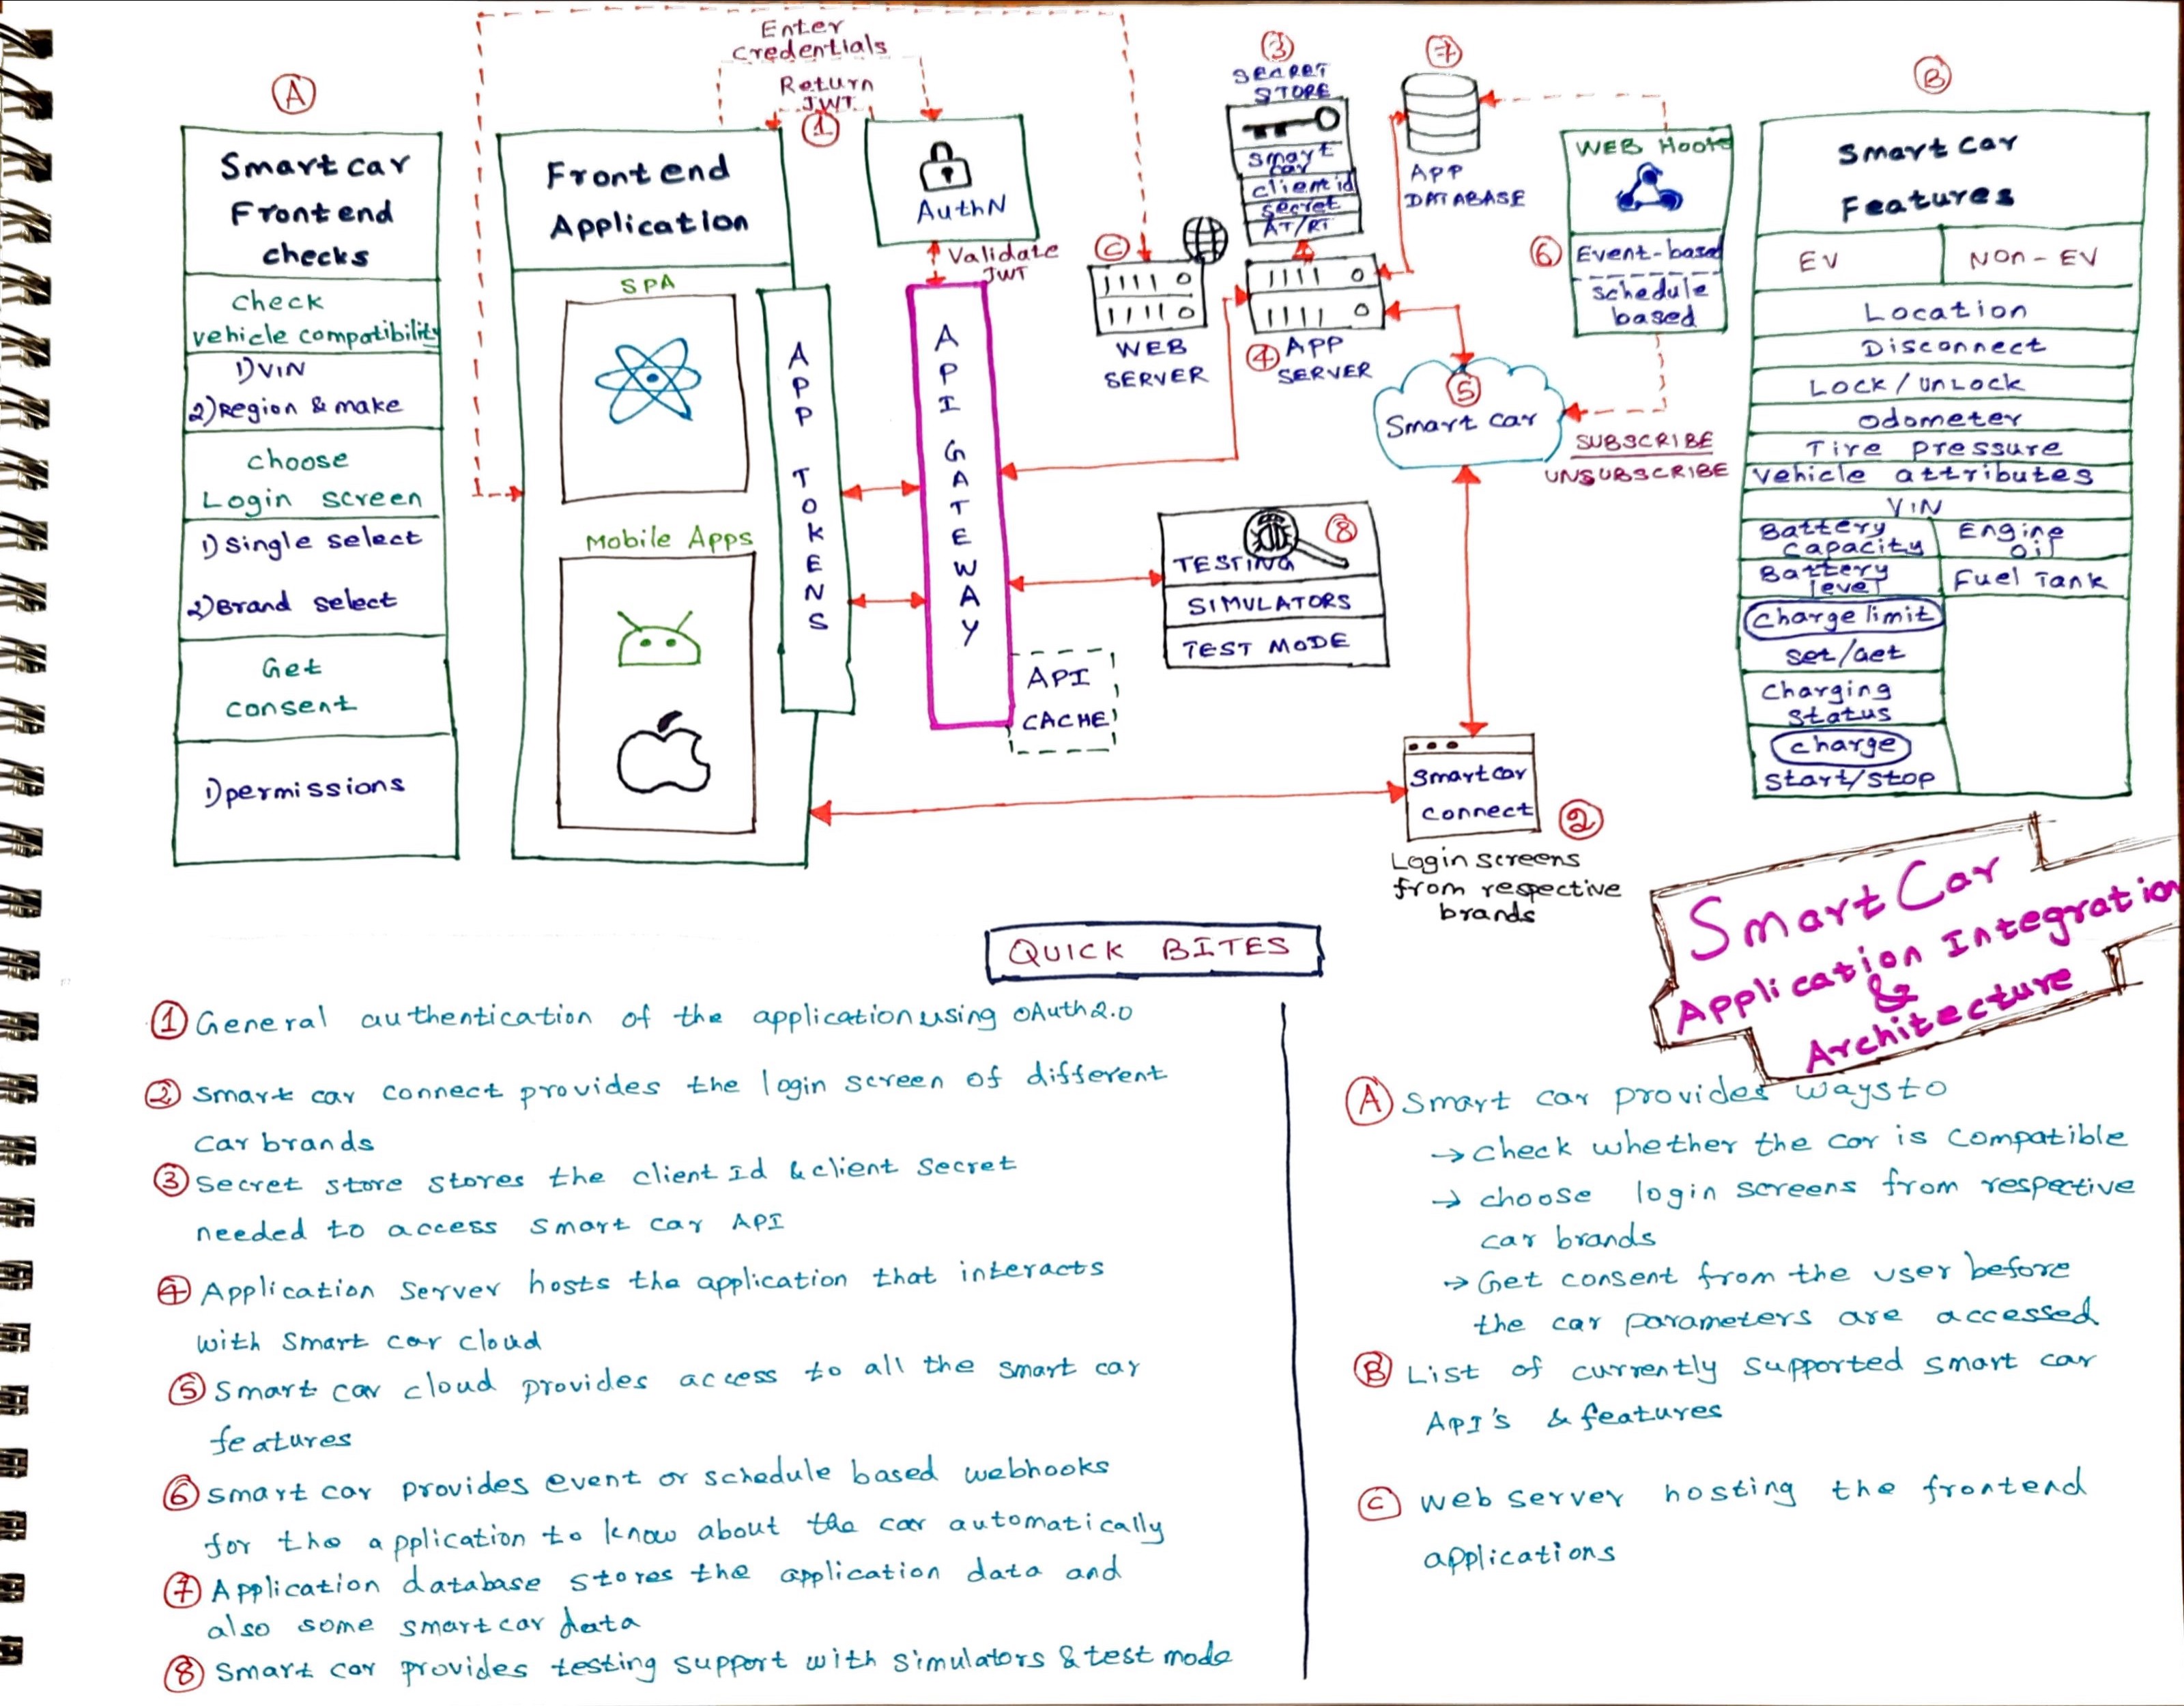 A
Smart car
Frontend
checks
check
vehicle compatibility
1) VIN
2) Region & make
choose
Login screen
1) Single select
2) Brand select
Get
consent
1) permissions
Enter
credentials
Return
JWT
1
Frontend
Application
SPA
Mobile Apps
APP TOKENS
AuthN
Validate
JWT
API GATEWAY
API
CACHE
C
WEB
SERVER
3
SECRET
STORE
Smart
car
client id
secret
AT/RT
4 APP
SERVER
7
APP
DATABASE
5
Smart car
WEB Hooks
6
Event-based
schedule
based
SUBSCRIBE
UNSUBSCRIBE
8
TESTING
SIMULATORS
TEST MODE
Smartcar
connect
2
Login screens
from respective
brands
B
Smart car
Features
EV Non-EV
Location
Disconnect
Lock/unLock
odometer
Tire pressure
vehicle attributes
VIN
Battery
capacity
Engine
oil
Battery
level
Fuel Tank
charge limit
set/Get
charging
status
charge
start/stop
Smart Car
Application Integration
&
Architecture
QUICK BITES
1 General authentication of the application using OAuth2.0
2 Smart car connect provides the login screen of different
car brands
3 Secret store stores the client Id & client secret
needed to access smart car API
4 Application server hosts the application that interacts
with smart car cloud
5 Smart car cloud provides access to all the smart car
features
6 smart car provides event or schedule based webhooks
for the application to know about the car automatically
7 Application database stores the application data and
also some smartcar data
8 Smart car provides testing support with simulators & test mode
A Smart car provides ways to
→ check whether the car is compatible
→ choose login screens from respective
car brands
→ Get consent from the user before
the car parameters are accessed
B List of currently supported smart car
API's & features
C web server hosting the frontend
applications